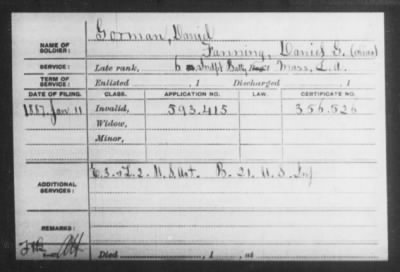 Gorman, Daniel
NAME OF SOLDIER: Fanning, Daniel G. (alias)
SERVICE: Late rank, 6 Indpt Batty Mass. L.A.
TERM OF SERVICE: Enlisted , 1 Discharged , 1
DATE OF FILING. CLASS. APPLICATION NO. LAW. CERTIFICATE NO.
1887. Jan 11 Invalid, 593.415 356.526
Widow,
Minor,
ADDITIONAL SERVICES: E. 3. & L. 2. U.S. Art. B. 21. U.S. Inf
REMARKS:
Died , 1 , at